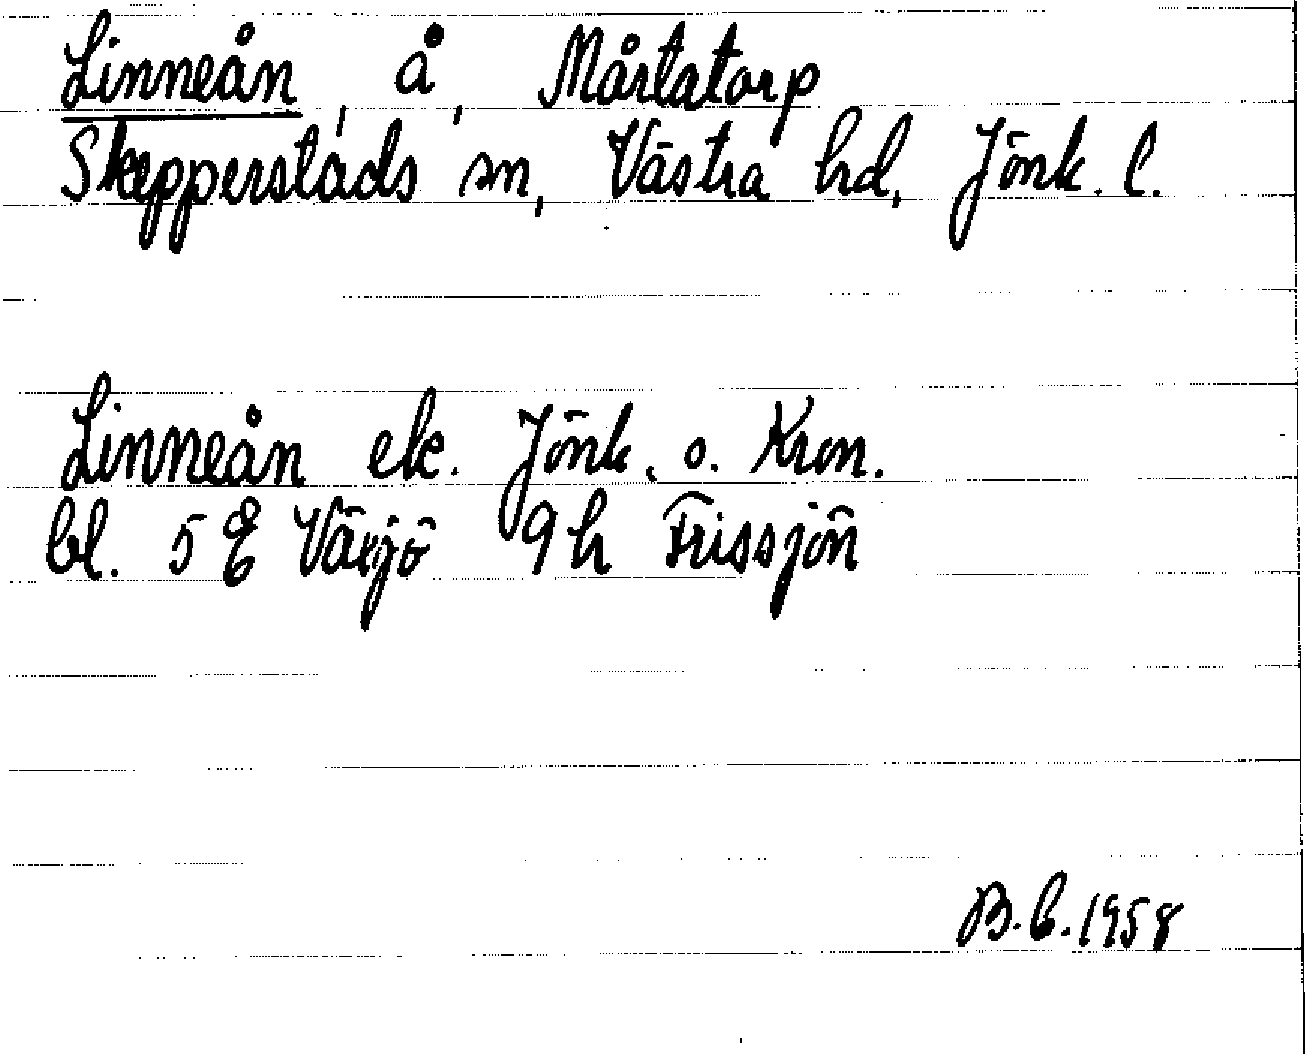 Linneån, å, Mårtatorp
Skepperstads sn, Västra hd, Jönk. l.
Linneån ek. Jönk. o. Kron.
bl. 5 E Växjö 9h Frissjön
B.b. 1958